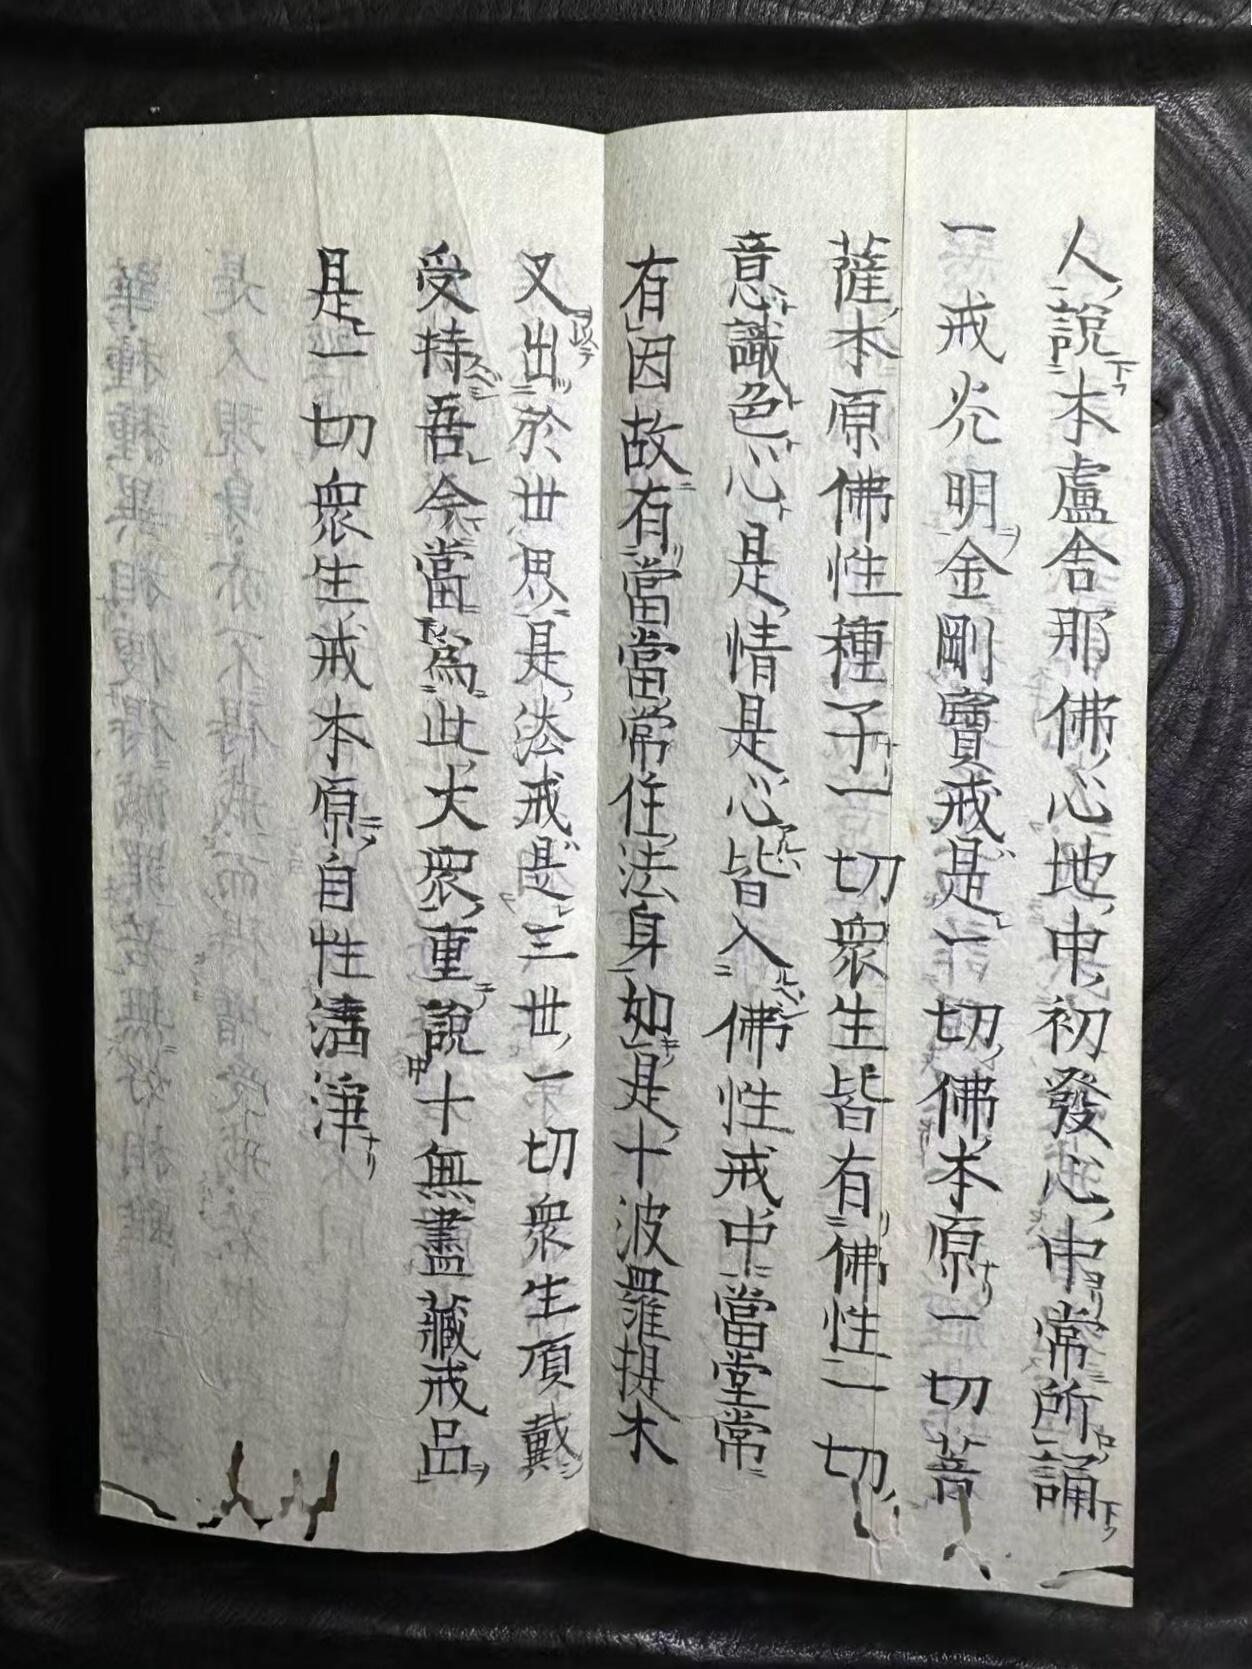 人說本盧舍那佛心地中初發心中常所誦
一戒光明金剛寶戒是一切佛本原一切菩
薩本原佛性種子一切衆生皆有佛性一切
意識色心是情是心皆入佛性戒中當當常
有因故有當當常住法身如是十波羅提木
叉出於世界是法戒是三世一切衆生頂戴
受持吾今當爲此大衆重說十無盡藏戒品
是一切衆生戒本原自性清淨